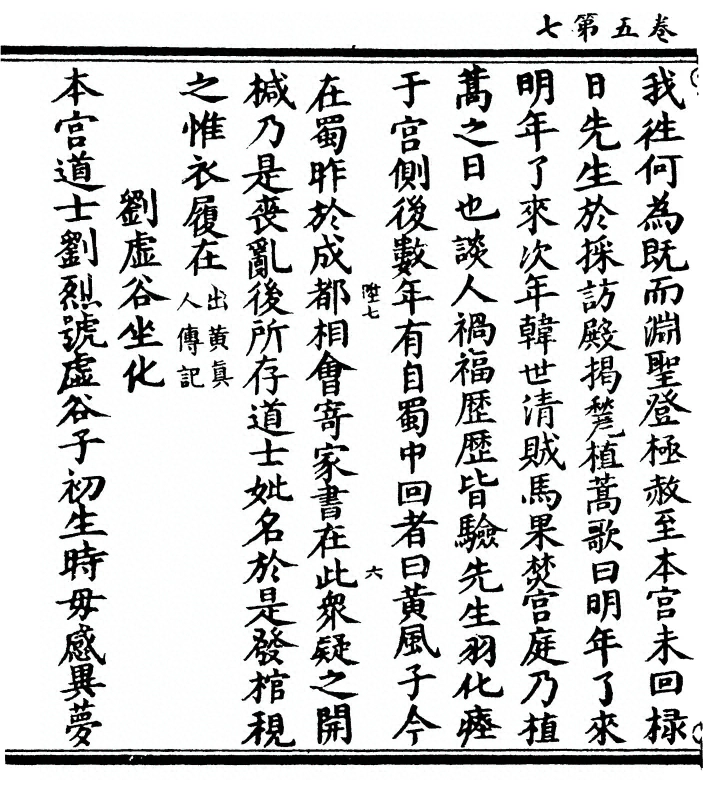 卷五第七
我徃何為既而淵聖登極赦至本宮未回禄
日先生於採訪殿揭甃植蒿歌曰明年了來
明年了來次年韓世清賊馬果焚宮庭乃植
蒿之日也談人禍福歷歷皆驗先生羽化瘞
于宮側後數年有自蜀中回者曰黃風子今
陞七 六
在蜀昨於成都相會寄家書在此衆疑之開
椷乃是喪亂後所存道士姓名於是發棺視
之惟衣履在出黃眞
人傳記
劉虛谷坐化
本宮道士劉烈號虛谷子初生時母感異夢